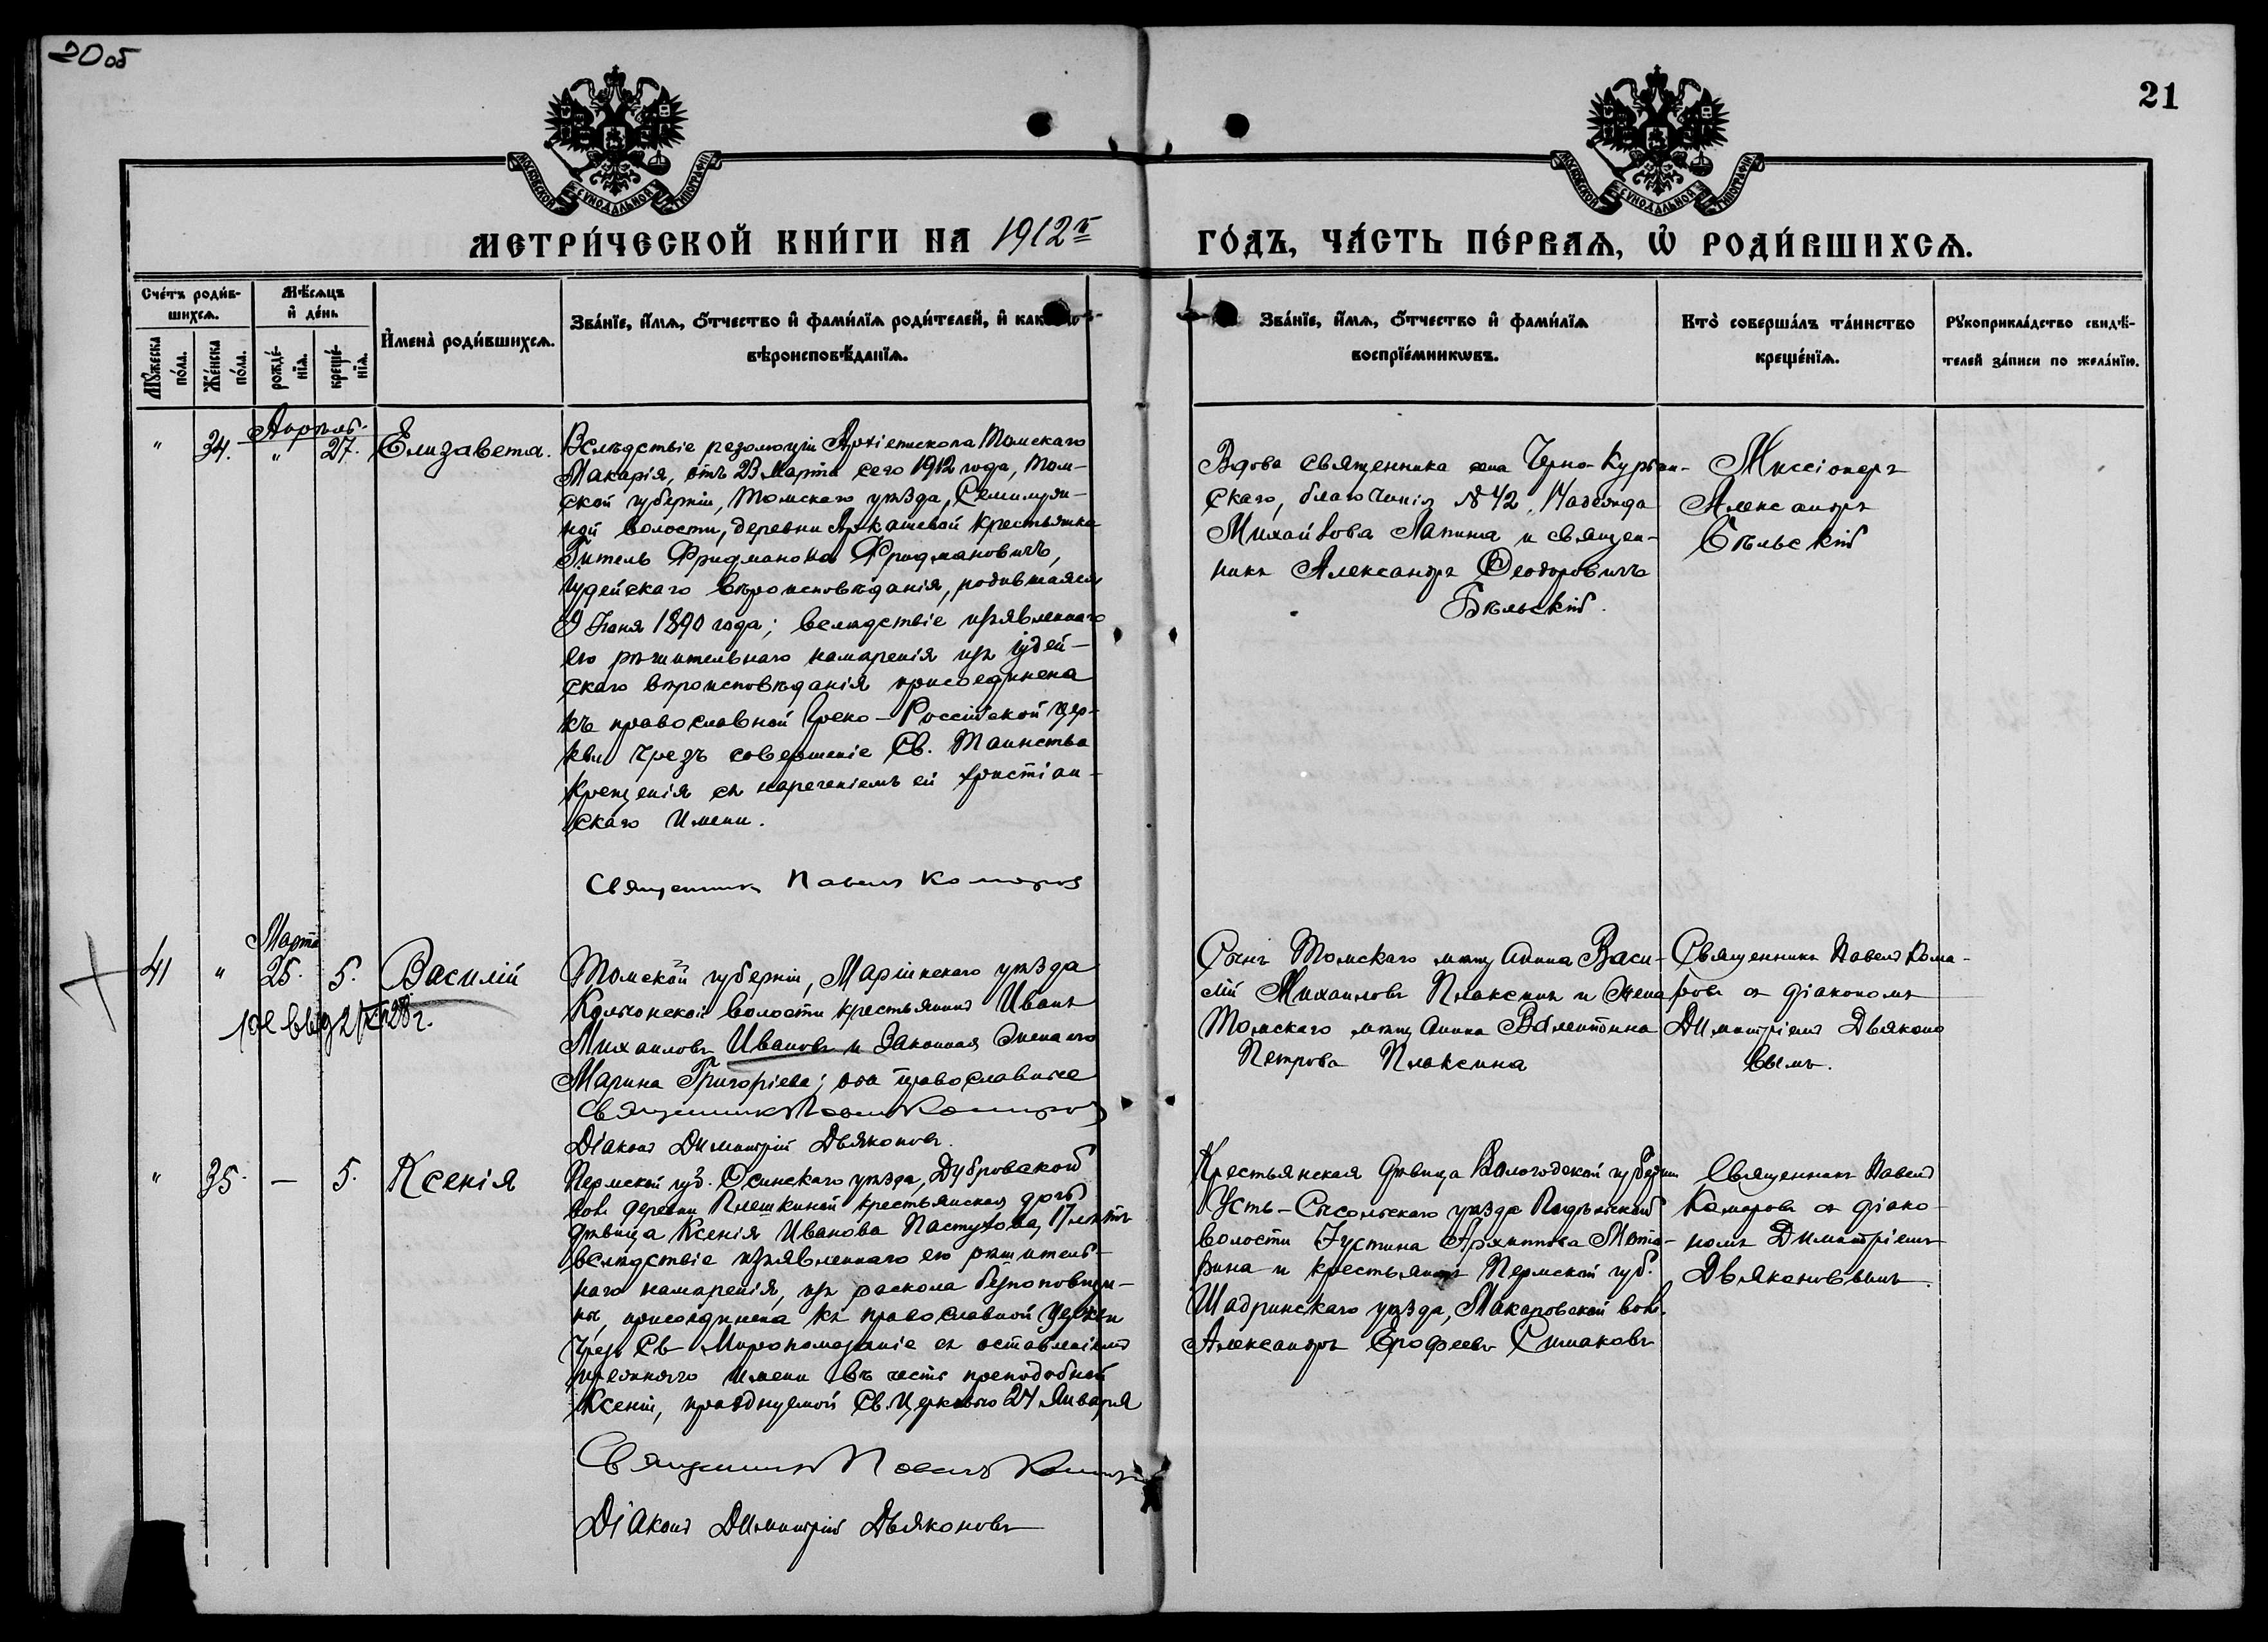 20 об
21
МОСКОВСКОЙ СѴНОДАЛЬНОЙ ТИПОГРАФІИ
МОСКОВСКОЙ СѴНОДАЛЬНОЙ ТИПОГРАФІИ
МЕТРИ́ЧЕСКОЙ КНИ́ГИ НА 1912й ГО́ДЪ, ЧА́СТЬ ПЕ́РВАѦ, Ѡ РОДИ́ВШИХСѦ.
Сче́тъ роди́в-
шихсѧ.
Мѹжеска по́ла.
Же́нска по́ла.
Мѣ́сѧцъ
и де́нь
рожде́-
нїѧ.
креще́-
нїѧ.
Имена̀ роди́вшихсѧ.
Зва́нїе, и́мѧ, ѻ́тчество и фами́лїѧ роди́телей, и как
вѣроисповѣ́данїѧ.
Зва́нїе, и́мѧ, ѻ́тчество и фами́лїѧ
воспрїе́мникѡвъ.
Кто̀ соверша́лъ та́инство
креще́нїѧ.
Рѹкоприкла́дство свидѣ́-
телей за́писи по жела́нїю.
" 34. Апрѣль. " 27. Елизавета.
Вслѣдствіе резолюціи Архіепископа Томскаго
Макарія, отъ 23 Марта сего 1912 года, Том-
ской губерніи, Томскаго уѣзда, Семилуж-
ной волости, деревни Аркашевой крестьянка
Гитель Фридманова Фридмановичъ,
іудейскаго вѣроисповѣданія, родившаяся
9 Іюня 1890 года; вслѣдствіе изъявленнаго
ею рѣшительнаго намѣренія изъ іудей-
скаго вѣроисповѣданія присоединена
къ православной Греко-Россійской Цер-
кви чрезъ совершеніе Св. Таинства
Крещенія съ нареченіемъ ей христіан-
скаго имени.
Священникъ Павелъ Комаровъ
Вдова священника села Черно-Курьин-
скаго, благочинія №42, Надежда
Михайлова Лапина и священ-
никъ Александръ Ѳеодоровичъ
Бѣльскій.
Миссіонеръ
Александръ
Бѣльскій
41 " Марта 25. 5. Василій
выд 2/XI 28 г.
Томской губерніи, Маріинскаго уѣзда
Колыонской волости крестьянинъ Иванъ
Михаиловъ Ивановъ и законная жена его
Марина Григоріева; оба православные
Священникъ Павелъ Комаровъ
Діаконъ Димитрій Дьяконовъ.
Сынъ Томскаго мѣщанина Васи-
лій Михаиловъ Плаксинъ и жена
Томскаго мѣщанина Валентина
Петрова Плаксина
Священникъ Павелъ Кома-
ровъ съ діакономъ
Димитріемъ Дьяконо
вымъ.
" 35. — 5. Ксенія
Пермской губ. Осинскаго уѣзда, Дубровской
вол. деревни Плешкиной крестьянская дочь
дѣвица Ксенія Иванова Пастухова, 17 лѣтъ
вслѣдствіе изъявленнаго ею рѣшитель-
наго намѣренія, изъ раскола безпоповщи-
ны, присоединена къ православной Церкви
чрезъ Св. Мѵропомазаніе съ оставленіемъ
прежняго имени въ честь преподобной
Ксеніи, празднуемой Св. Церковью 24 Января
Священникъ Павелъ Комаровъ
Діаконъ Димитрій Дьяконовъ
Крестьянская дѣвица Вологодской губерніи
Усть-Сысольскаго уѣзда
волости Іустина Архиппова
и крестьянинъ Пермской губ.
Шадринскаго уѣзда, Макаровской вол.
Александръ Ерофеевъ Симаковъ
Священникъ Павелъ
Комаровъ съ діако-
номъ Димитріемъ
Дьяконовымъ.